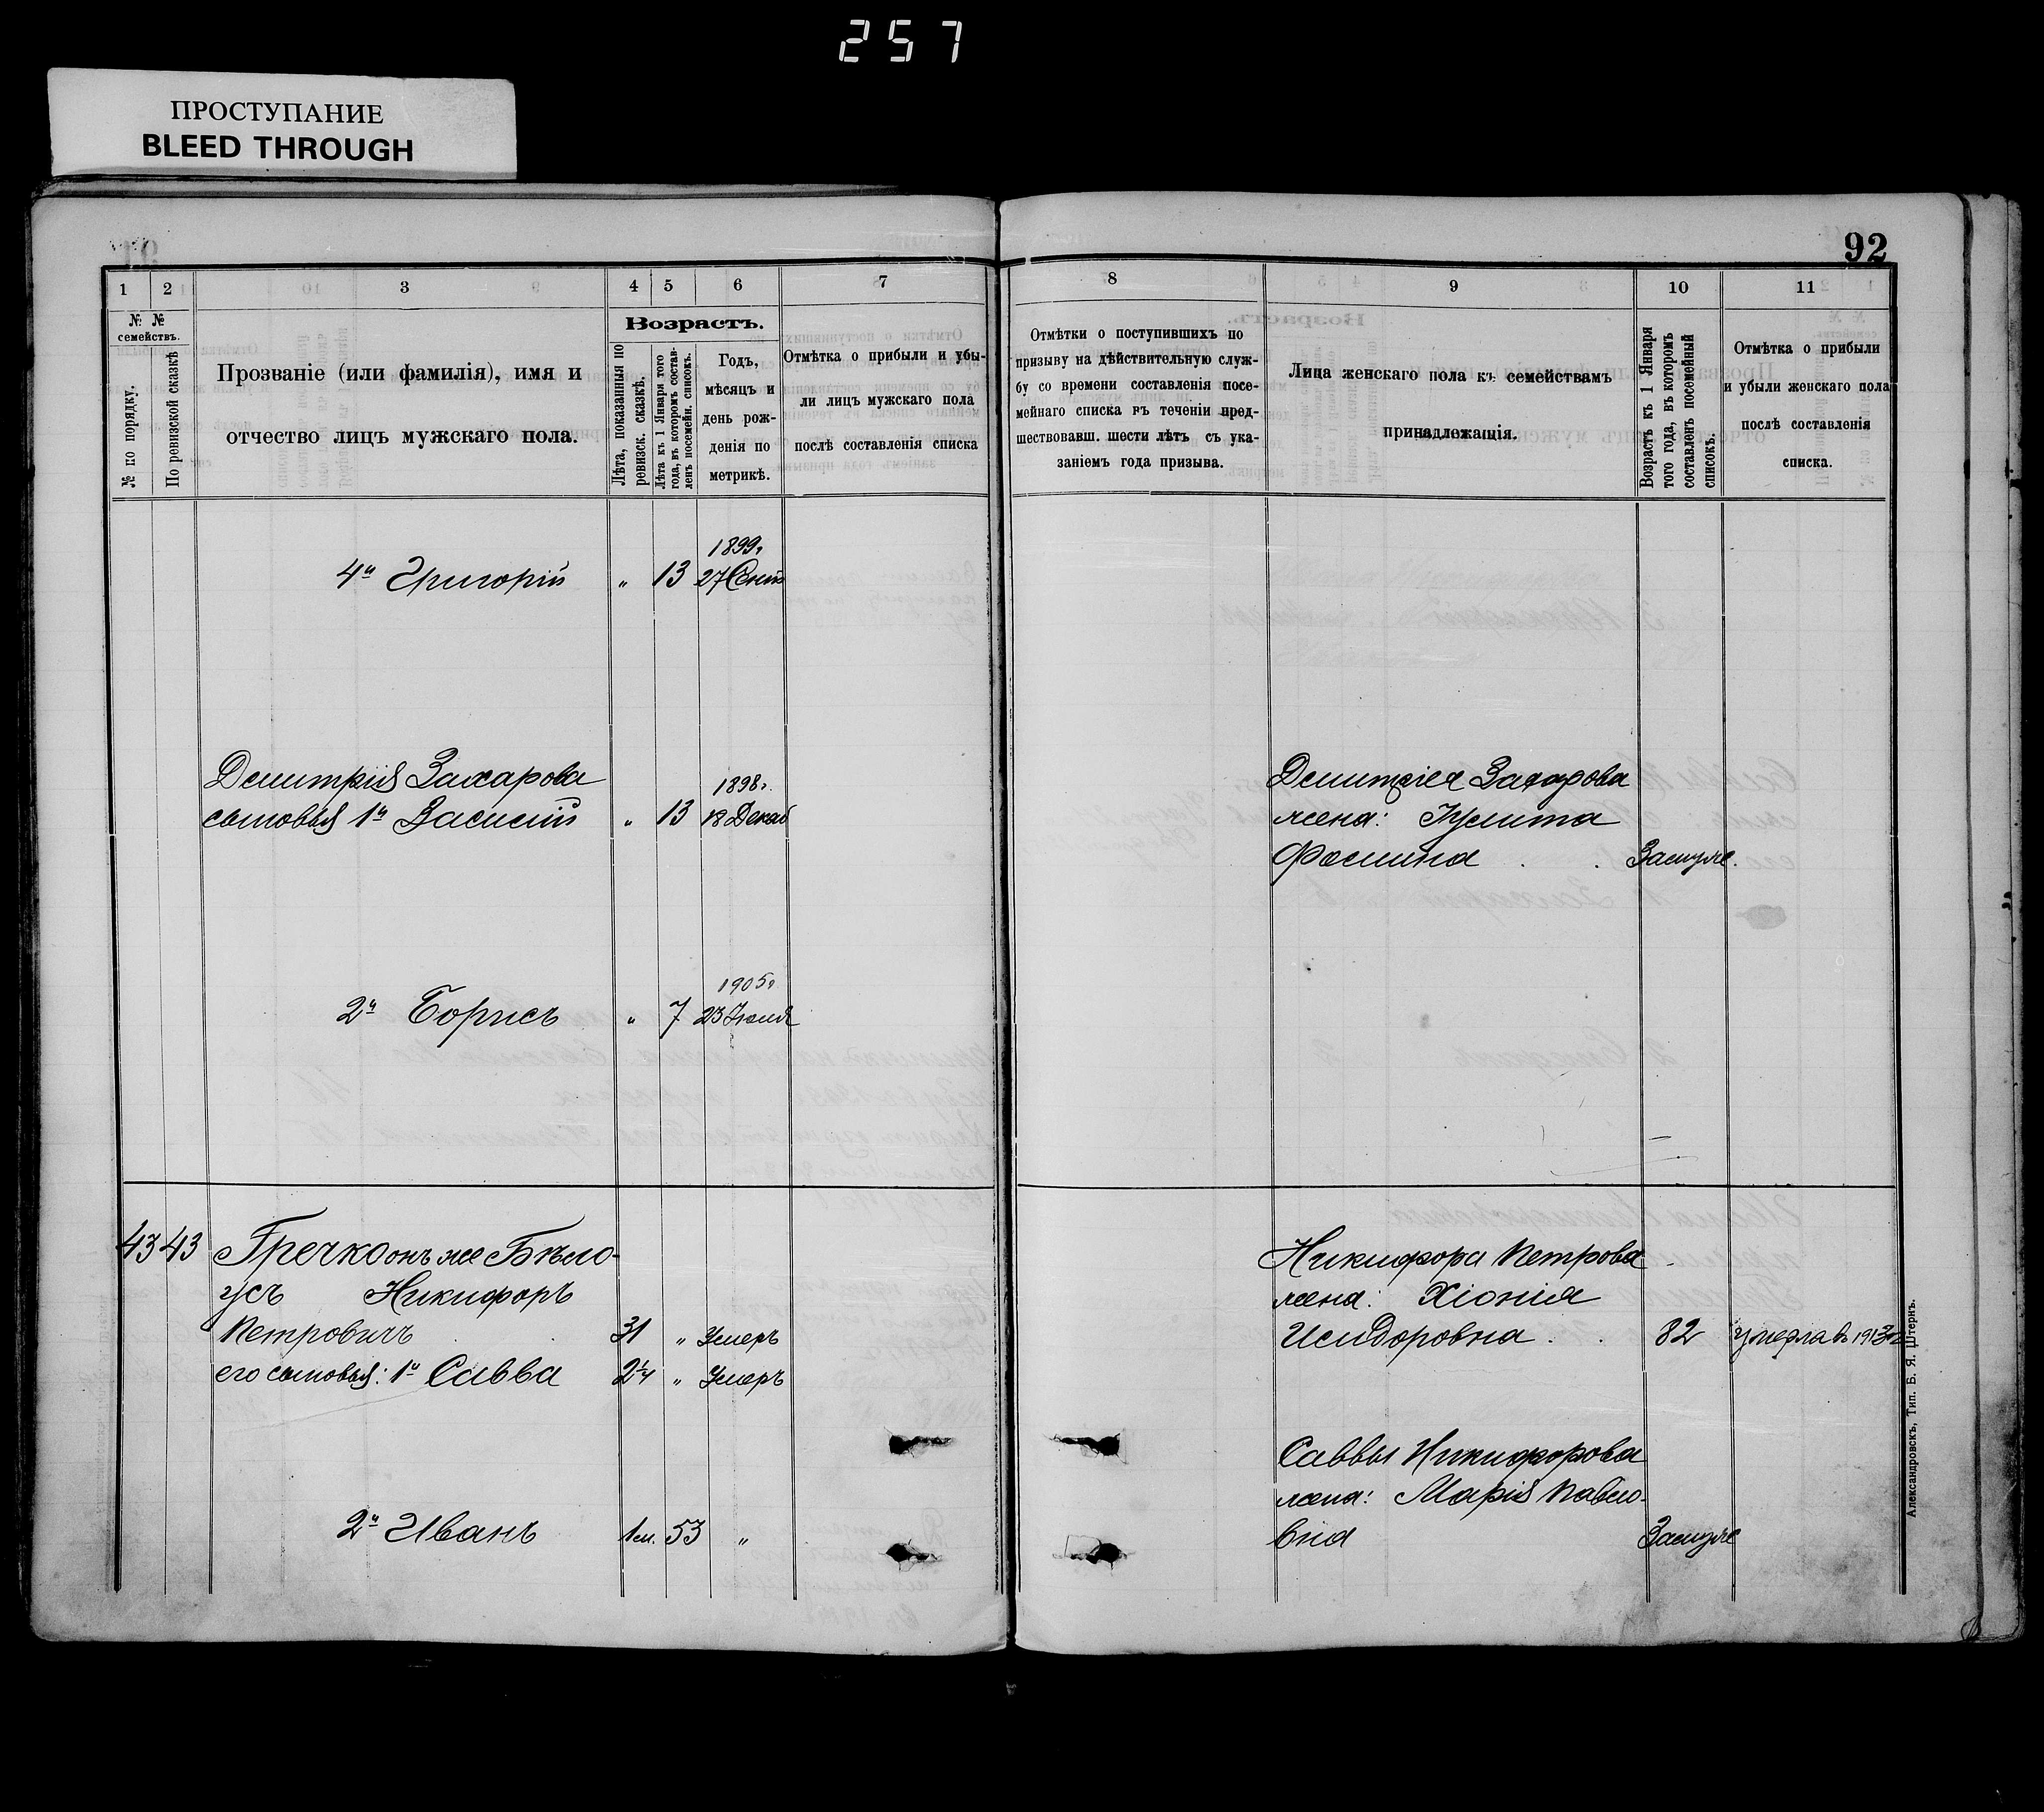 257
ПРОСТУПАНИЕ
BLEED THROUGH
92
1 2 3 4 5 6 7
№ №
семействъ.
№ по порядку.
По ревизской сказкѣ
Прозваніе (или фамилія), имя и
отчество лицъ мужскаго пола.
Возрастъ.
Лѣта, показанныя по
ревизск. сказкѣ.
Лѣта къ 1 Января того
года, въ которомъ состав-
ленъ посемейн. списокъ.
Годъ,
мѣсяцъ и
день рож-
денія по
метрикѣ.
Отмѣтка о прибыли и убы-
ли лицъ мужскаго пола
послѣ составленія списка
8 9 10 11
Отмѣтки о поступившихъ по
призыву на дѣйствительную служ-
бу со времени составленія посе-
мейнаго списка въ теченіи пред-
шествовавш. шести лѣтъ съ ука-
заніемъ года призыва.
Лица женскаго пола къ семействамъ
принадлежащія.
Возрастъ къ 1 Января
того года, въ которомъ
составленъ посемейный
списокъ.
Отмѣтка о прибыли
и убыли женскаго пола
послѣ составленія
списка.
1899г.
4й Григорій " 13 27 Сент
Демитрія Захарова
1898г.
сыновья 1й Василій " 13 18 Декаб
1905г
2й Борисъ " 7 23 Іюля
43 43 Гречко онъ же Бѣло-
усъ Никифоръ
Петровичъ 31 " Умеръ
его сыновья: 1й Савва 24 " Умеръ
2й Иванъ 1м. 53 "
Демитрія Захарова
жена: Іулита
Фомина Замуже.
Никифора Петрова
жена: Хіонія
Исидоровна 82 умерла в 1913г
Саввы Никифорова
жена: Марія Павло-
вна Замуже
Александровскъ, Тип. Б. Я. Штернъ.